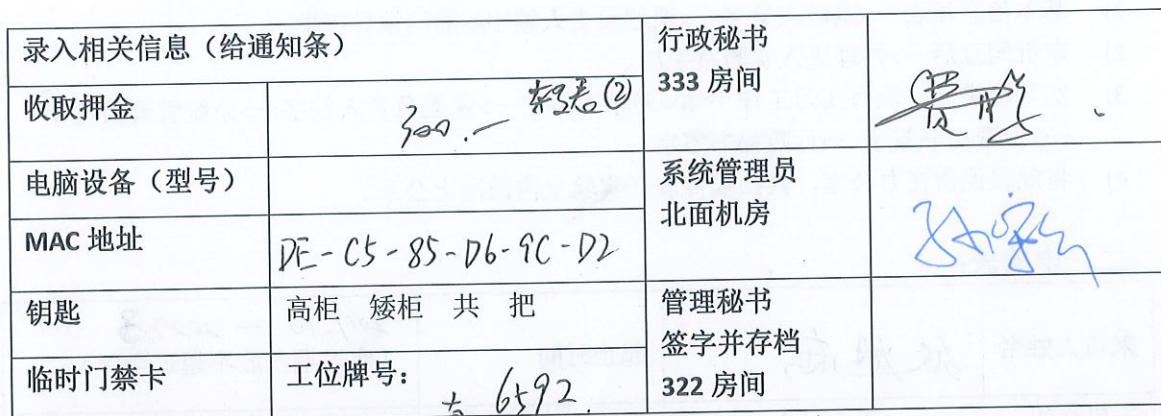 录入相关信息（给通知条）
行政秘书
333 房间
收取押金
500.-
②
电脑设备（型号）
系统管理员
北面机房
MAC 地址
DE-C5-85-D6-9C-D2
钥匙
高柜 矮柜 共 把
管理秘书
签字并存档
322 房间
临时门禁卡
工位牌号：
6592